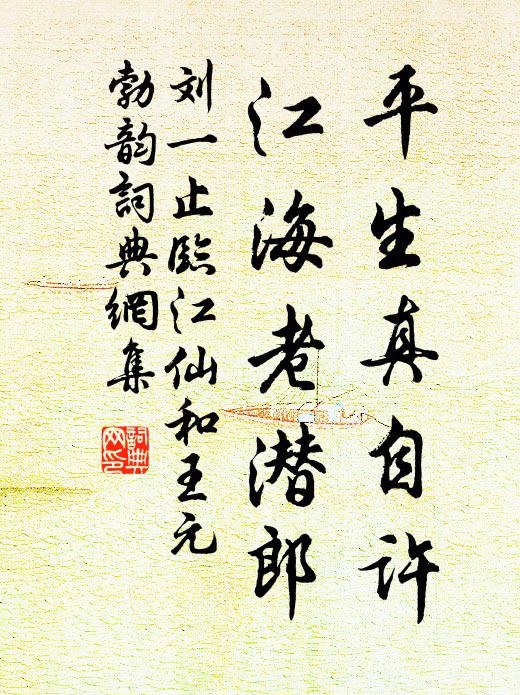 平生真自许
江海老潜郎
刘一止臨江仙和王元
勃韵詞典網集
詞典网印